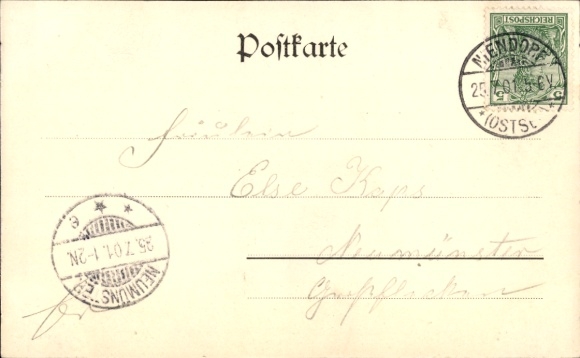 Postkarte
REICHSPOST
5 5
NIENDORF
25.7.01.5-6V.
(OSTSEE)
Fräulein
Else Kaps
Neumünster
Großflecken
NEUMÜNSTER
25.7.01.1-2N.
e